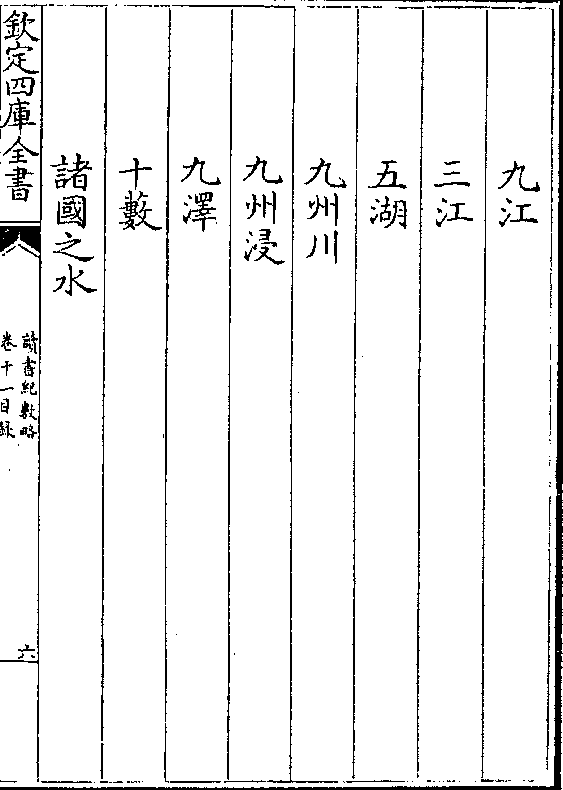 九江
三江
五湖
九州川
九州浸
九澤
十藪
諸國之水
欽定四庫全書
讀書紀數略
卷十一目録
六